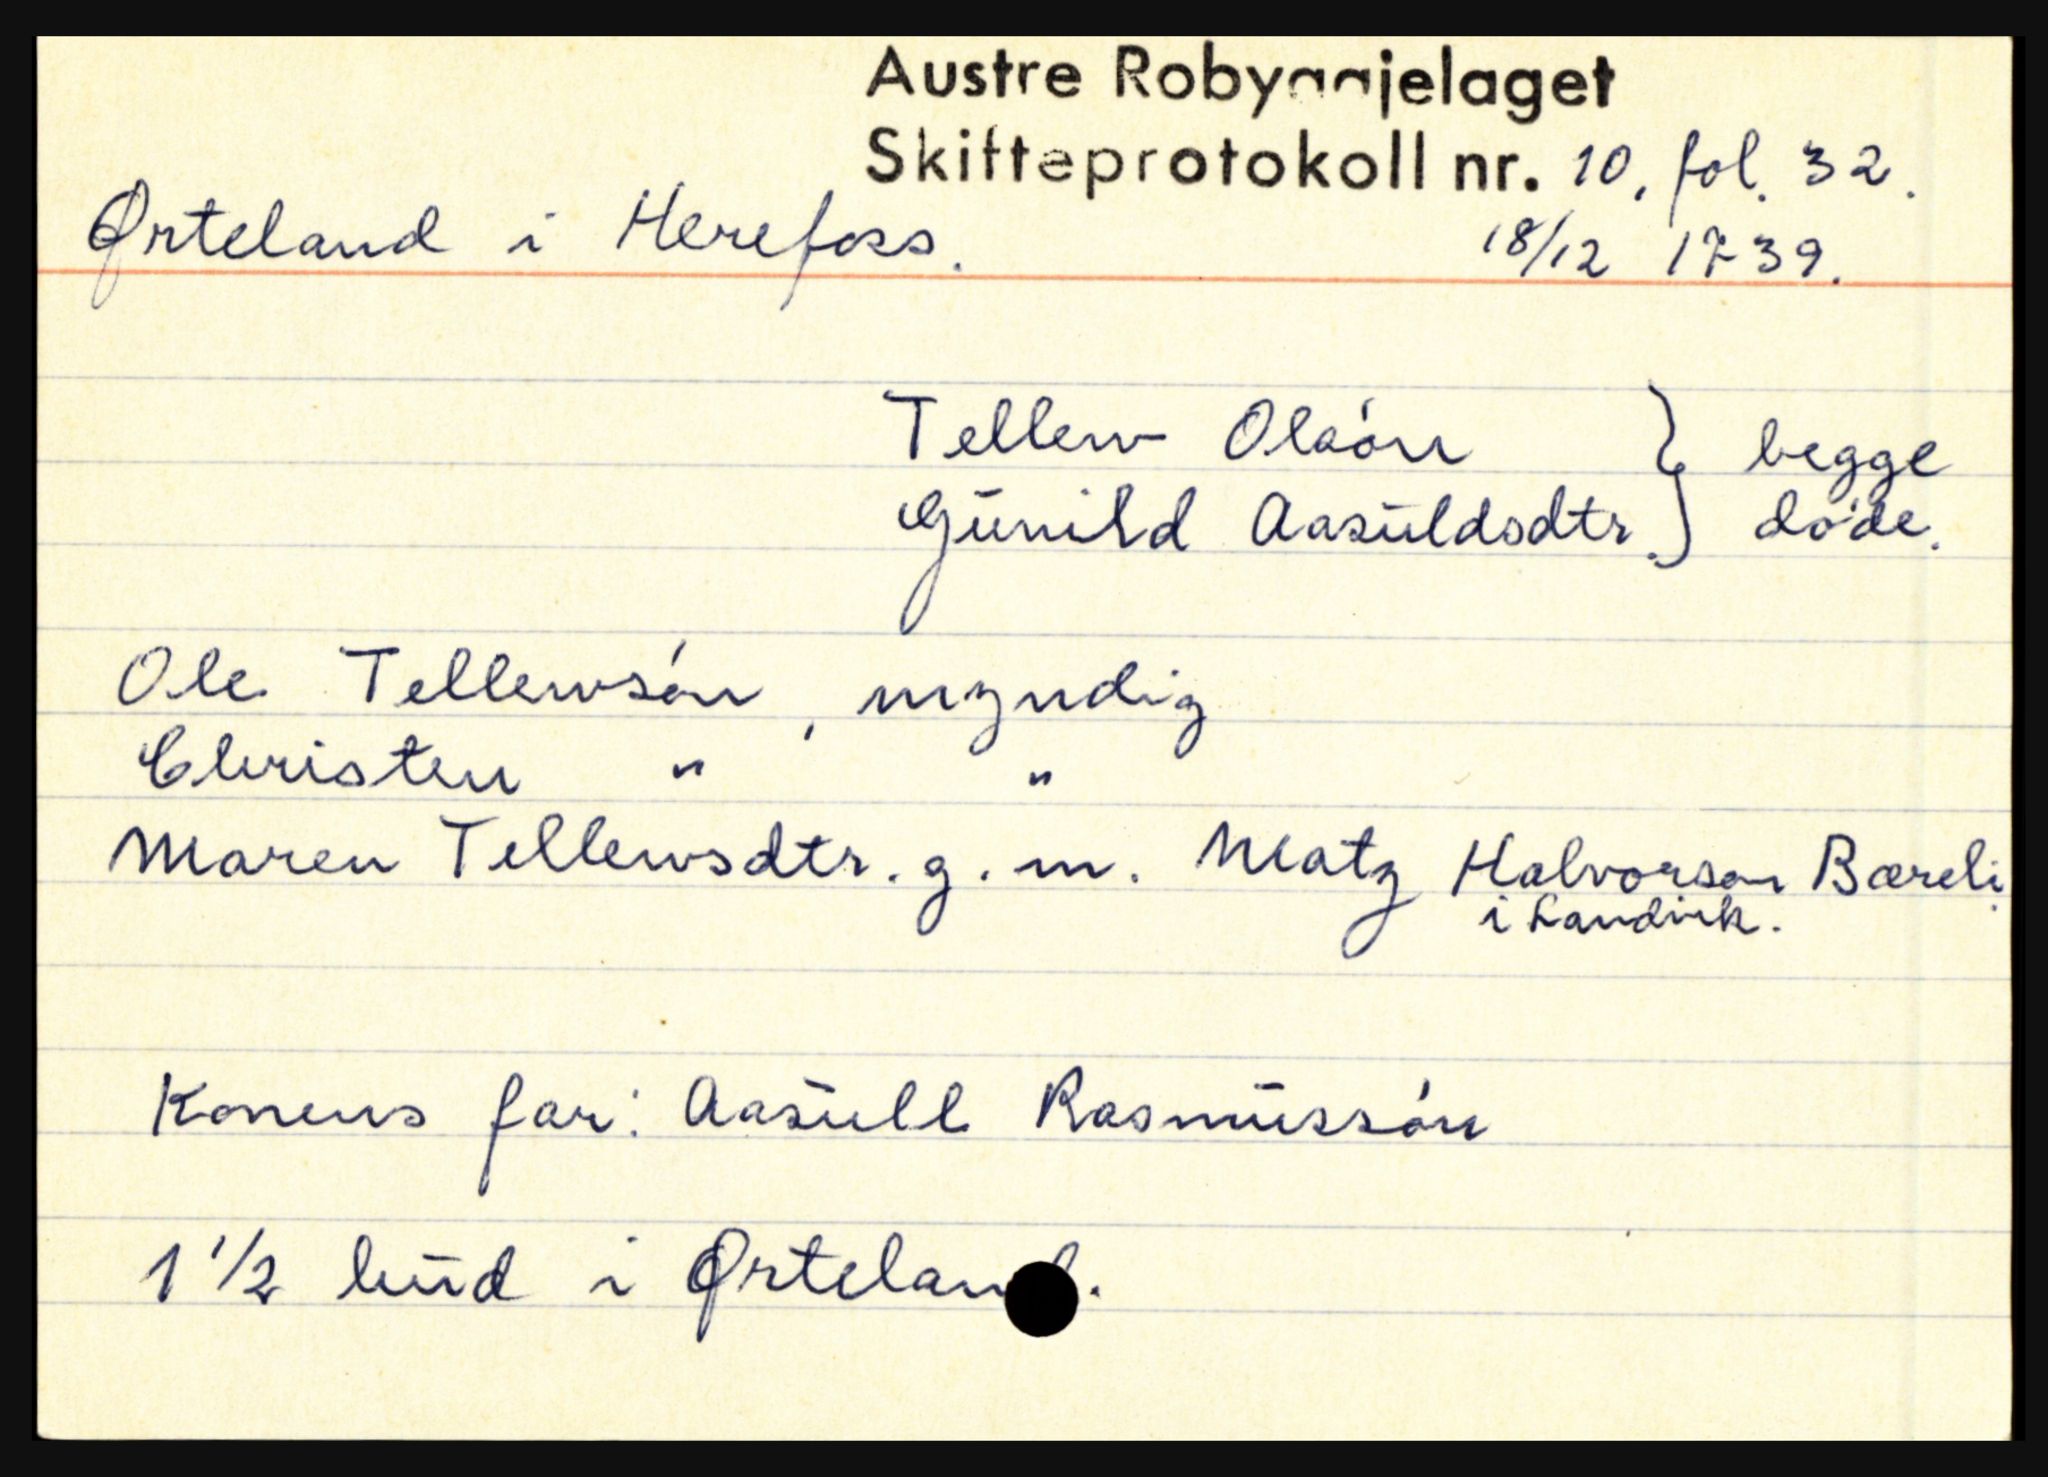 Austre Robyggjelaget
Skifteprotokoll nr. 10, fol. 32.
Ørteland i Herefoss. 18/12 1739.
Tellew Olsón } begge
Gūnild Aasūldsdtr. } døde.
Ole Tellewsón, myndig
Christen " "
Maren Tellewsdtr. g. m. Matz Halvorson Bæreli
i Landvik.
Konens far: Aasūll Rasmūssón
1 1/2 hūd i Ørteland.